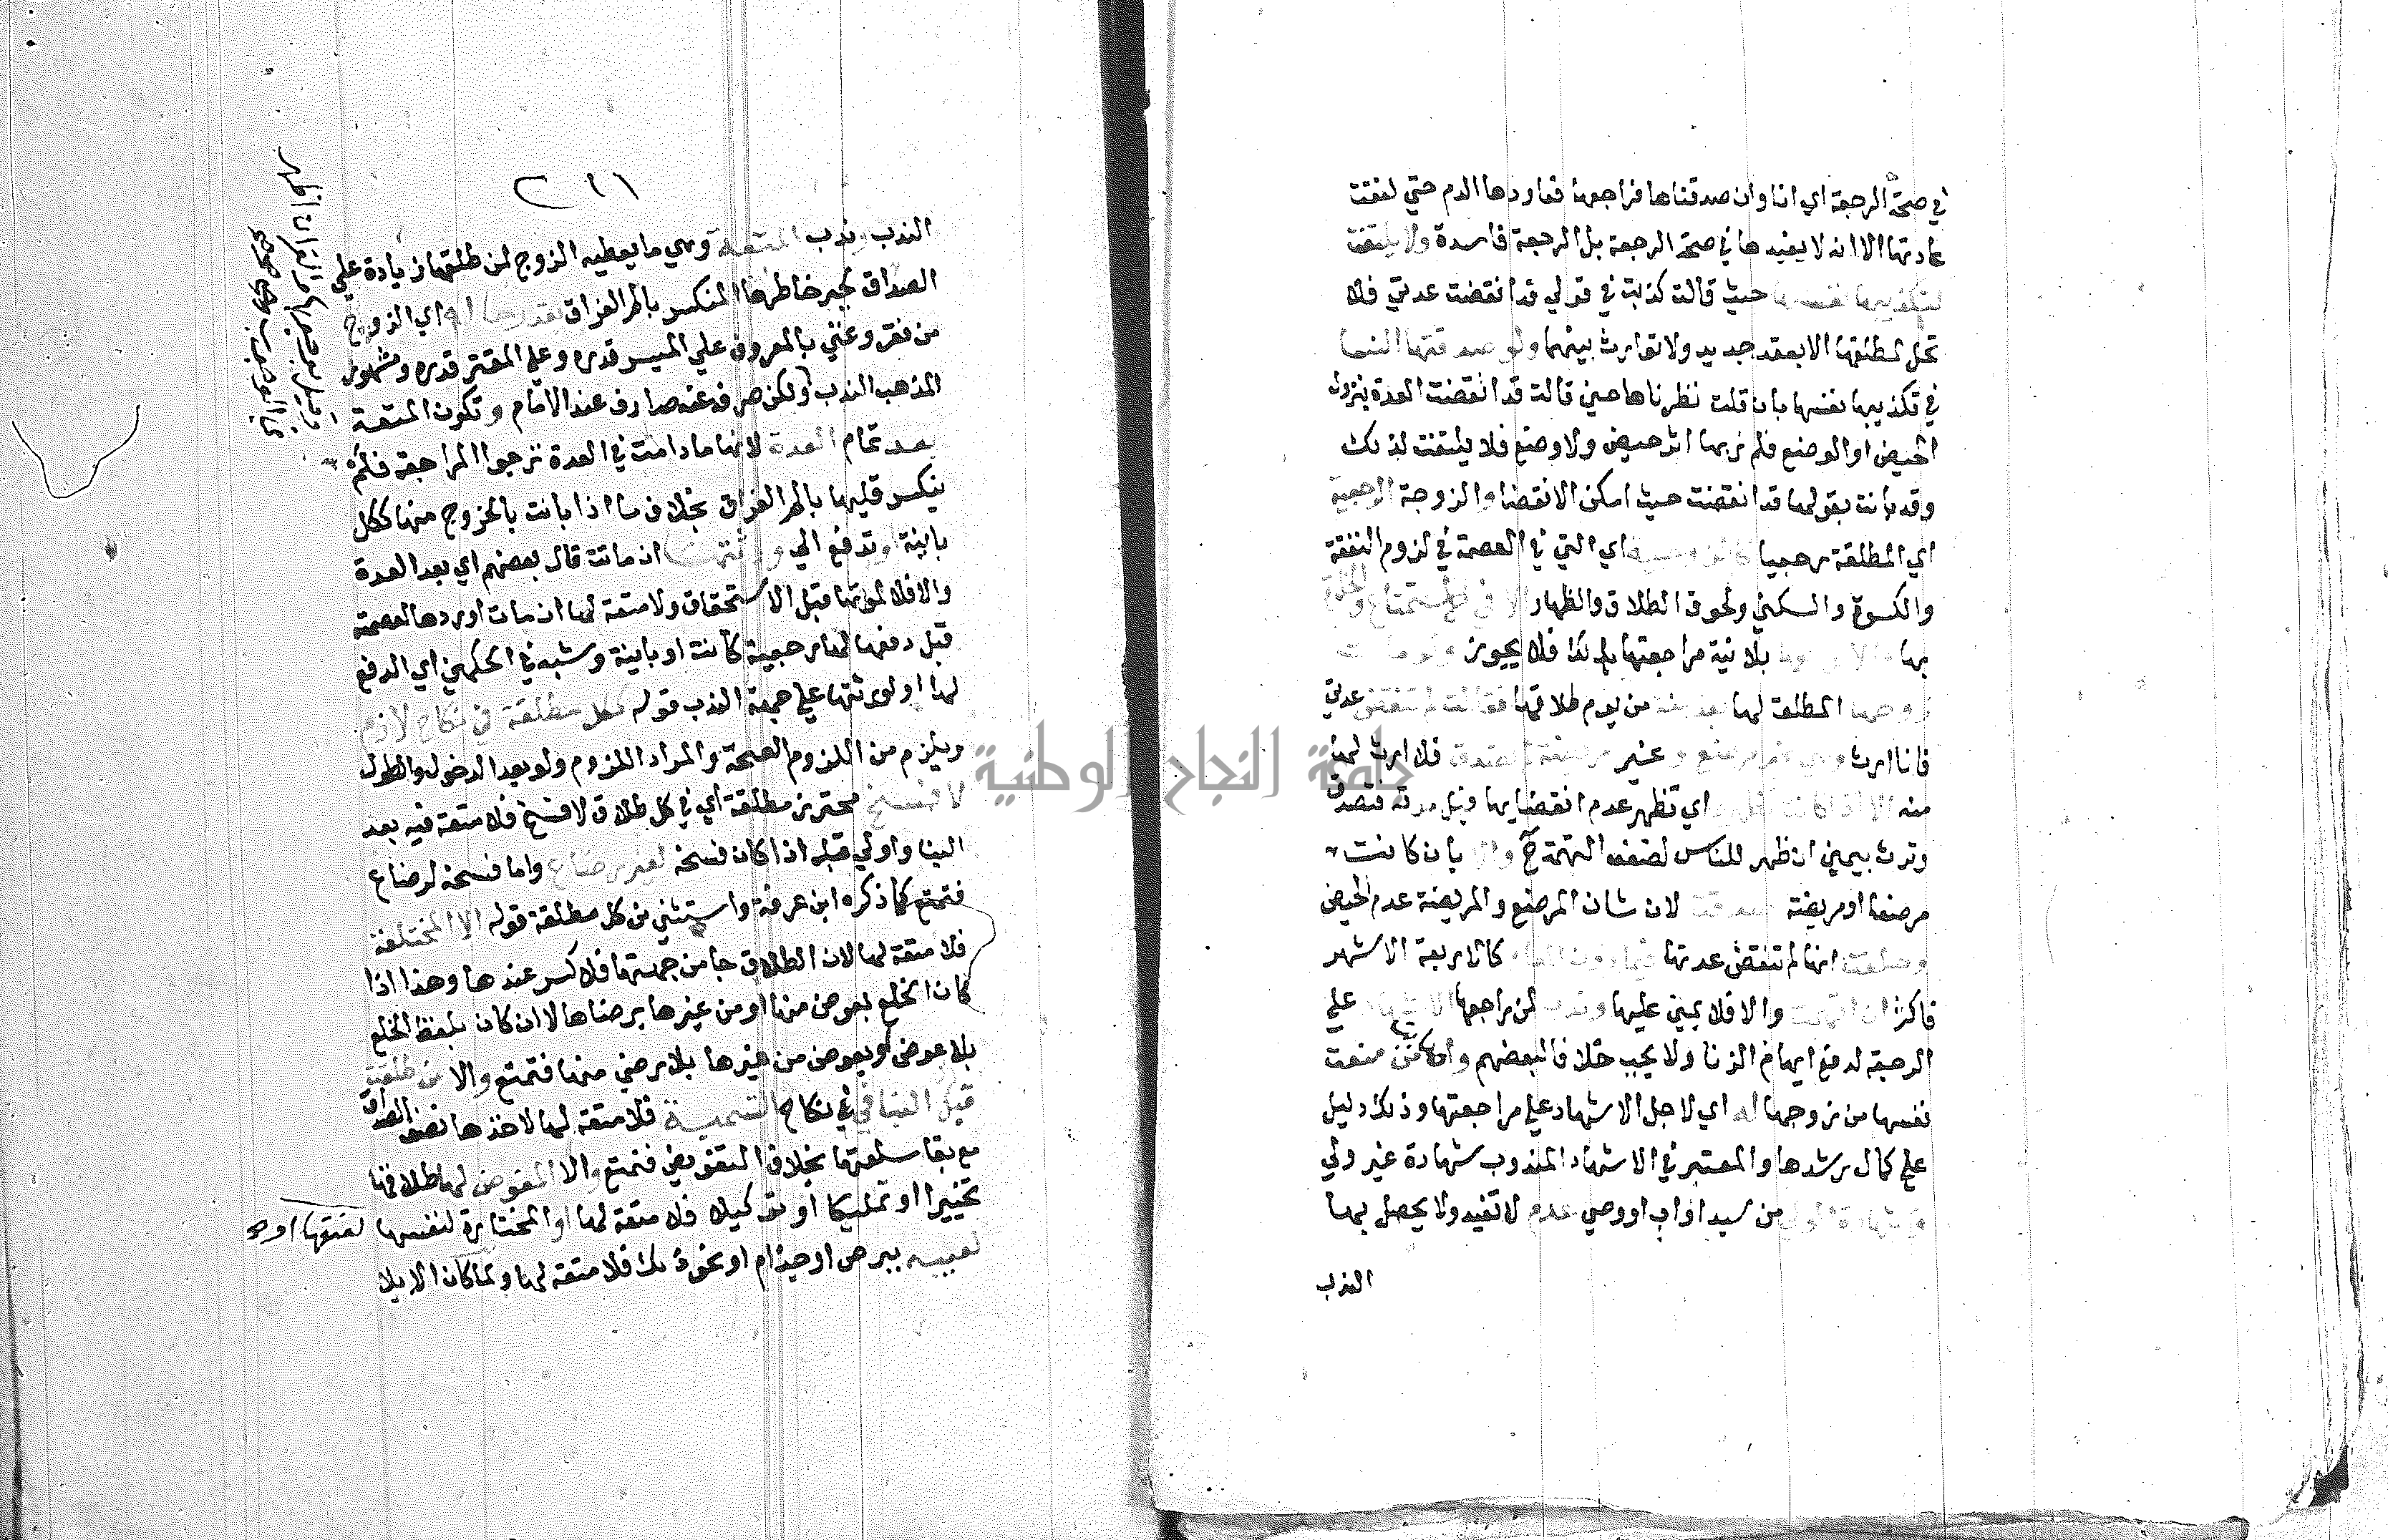 في صحة الرجعة اي انا وان صدقناها فراجعها فعاودها الدم حتي لفقت
عادتها الا انه لا يفيدها في صحة الرجعة بل الرجعة فاسدة ولا يلتفت
لتكذيبها نفسها حيث قالت كذبت في قولي قد انقضت عدتي فلا
تحل لمطلقها الا بعقد جديد ولا توارث بينهما ولو صدقتها النسا
في تكذيبها نفسها بان قلت نظرناها حين قالت قد انقضت العدة بنزول
الحيض او الوضع فلم نر بها اثر حيض ولا وضع فلا يلتفت لذلك
وقد بانت بقولها قد انقضت حيث امكن الانقضا والزوجة الرجعية
اي المطلقة رجعيا كالزوجة اي التي في العصمة في لزوم النفقة
والكسوة والسكني ولحوق الطلاق والظهار الا في الاستمتاع والخلوة
بها بلا نية مراجعتها بذلك فلا يجوز ولو مات
زوجها المطلق لها بعد سنة من يوم طلاقها فقالت لم تنقض عدتي
فانا ارث وهي غير مرضع و غير مريضة لم تصدق فلا ارث لها
منه الا اذا كانت تظهره اي تظهر عدم انقضايها قبل موته فتصدق
وترث بيمين ان ظهر للناس لضعف التهمة ح والا بان كانت
مرضعا او مريضة صدقت لان شان المرضع والمريضة عدم الحيض
وحلفت انها لم تنقض عدتها فيما دون العام كالاربعة الاشهر
فاكثر ان اتهمت والا فلا يمين عليها وندب لمن راجعها الاشهاد علي
الرجعة لدفع ايهام الزنا ولا يجب خلافا لبعضهم منعت
نفسها من زوجها له اي لاجل الاشهاد علي مراجعتها وذلك دليل
علي كمال رشدها والمعتبر في الاشهاد المندوب شهادة غير ولي
وشهادة الولي من سيد او اب او وصي عدم لا تفيد ولا يحصل بها
الندب
٢١١
الندب وندب المتعة وهي ما يعطيه الزوج لمن طلقها زيادة علي
الصداق لجبر خاطرها المنكسر بالم الفراق بقدر حاله اي الزوج
من فقر وغني بالمعروف علي الميسر قدره وعلي المقتر قدره ومشهور
المذهب الندب ولكن صرفه عنه صارف عند الامام وتكون المتعة
بعد تمام العدة لانها ما دامت في العدة ترجوا المراجعة فلم
ينكسر قلبها بالم الفراق بخلاف ما اذا بانت بالخروج منها ككل
باينة او تدفع الي ورثتها ان ماتت قال بعضهم اي بعد العدة
والا فلا لموتها قبل الاستحقاق ولا متعة لها ان مات او ردها لعصمته
قبل دفعها لها رجعية كانت او باينة وشبه في الحكمين اي الدفع
لها او لورثتها علي جهة الندب قوله ككل مطلقة في نكاح لازم
ويلزم من اللزوم الصحة والمراد اللزوم ولو بعد الدخول والطول
لا فسخ محترز مطلقة اي في كل طلاق لا فسخ فلا متعة فيه بعد
البنا واولي قبله اذا كان فسخه لغير رضاع واما فسخه لرضاع
فتمتع كما ذكره ابن عرفة واستثني من كل مطلقة قوله الا المختلعة
فلا متعة لها لان الطلاق جا من جهتها فلا كسر عندها وهذا اذا
كان الخلع بعوض منها او من غيرها برضاها لا ان كان بلفظ الخلع
بلا عوض او بعوض من غيرها بلا رضي منها فتمتع والا من طلقت
قبل البنا في نكاح التسمية فلا متعة لها لاخذها نصف الصداق
مع بقا سلعتها بخلاف التفويض فتمتع والا المفوض لها طلاقها
تخييرا او تمليكا او توكيلا فلا متعة لها او المختارة لنفسها لعتقها او
لعيبه ببرص او جذام او نحو ذلك فلا متعة لها ولما كان الايلا